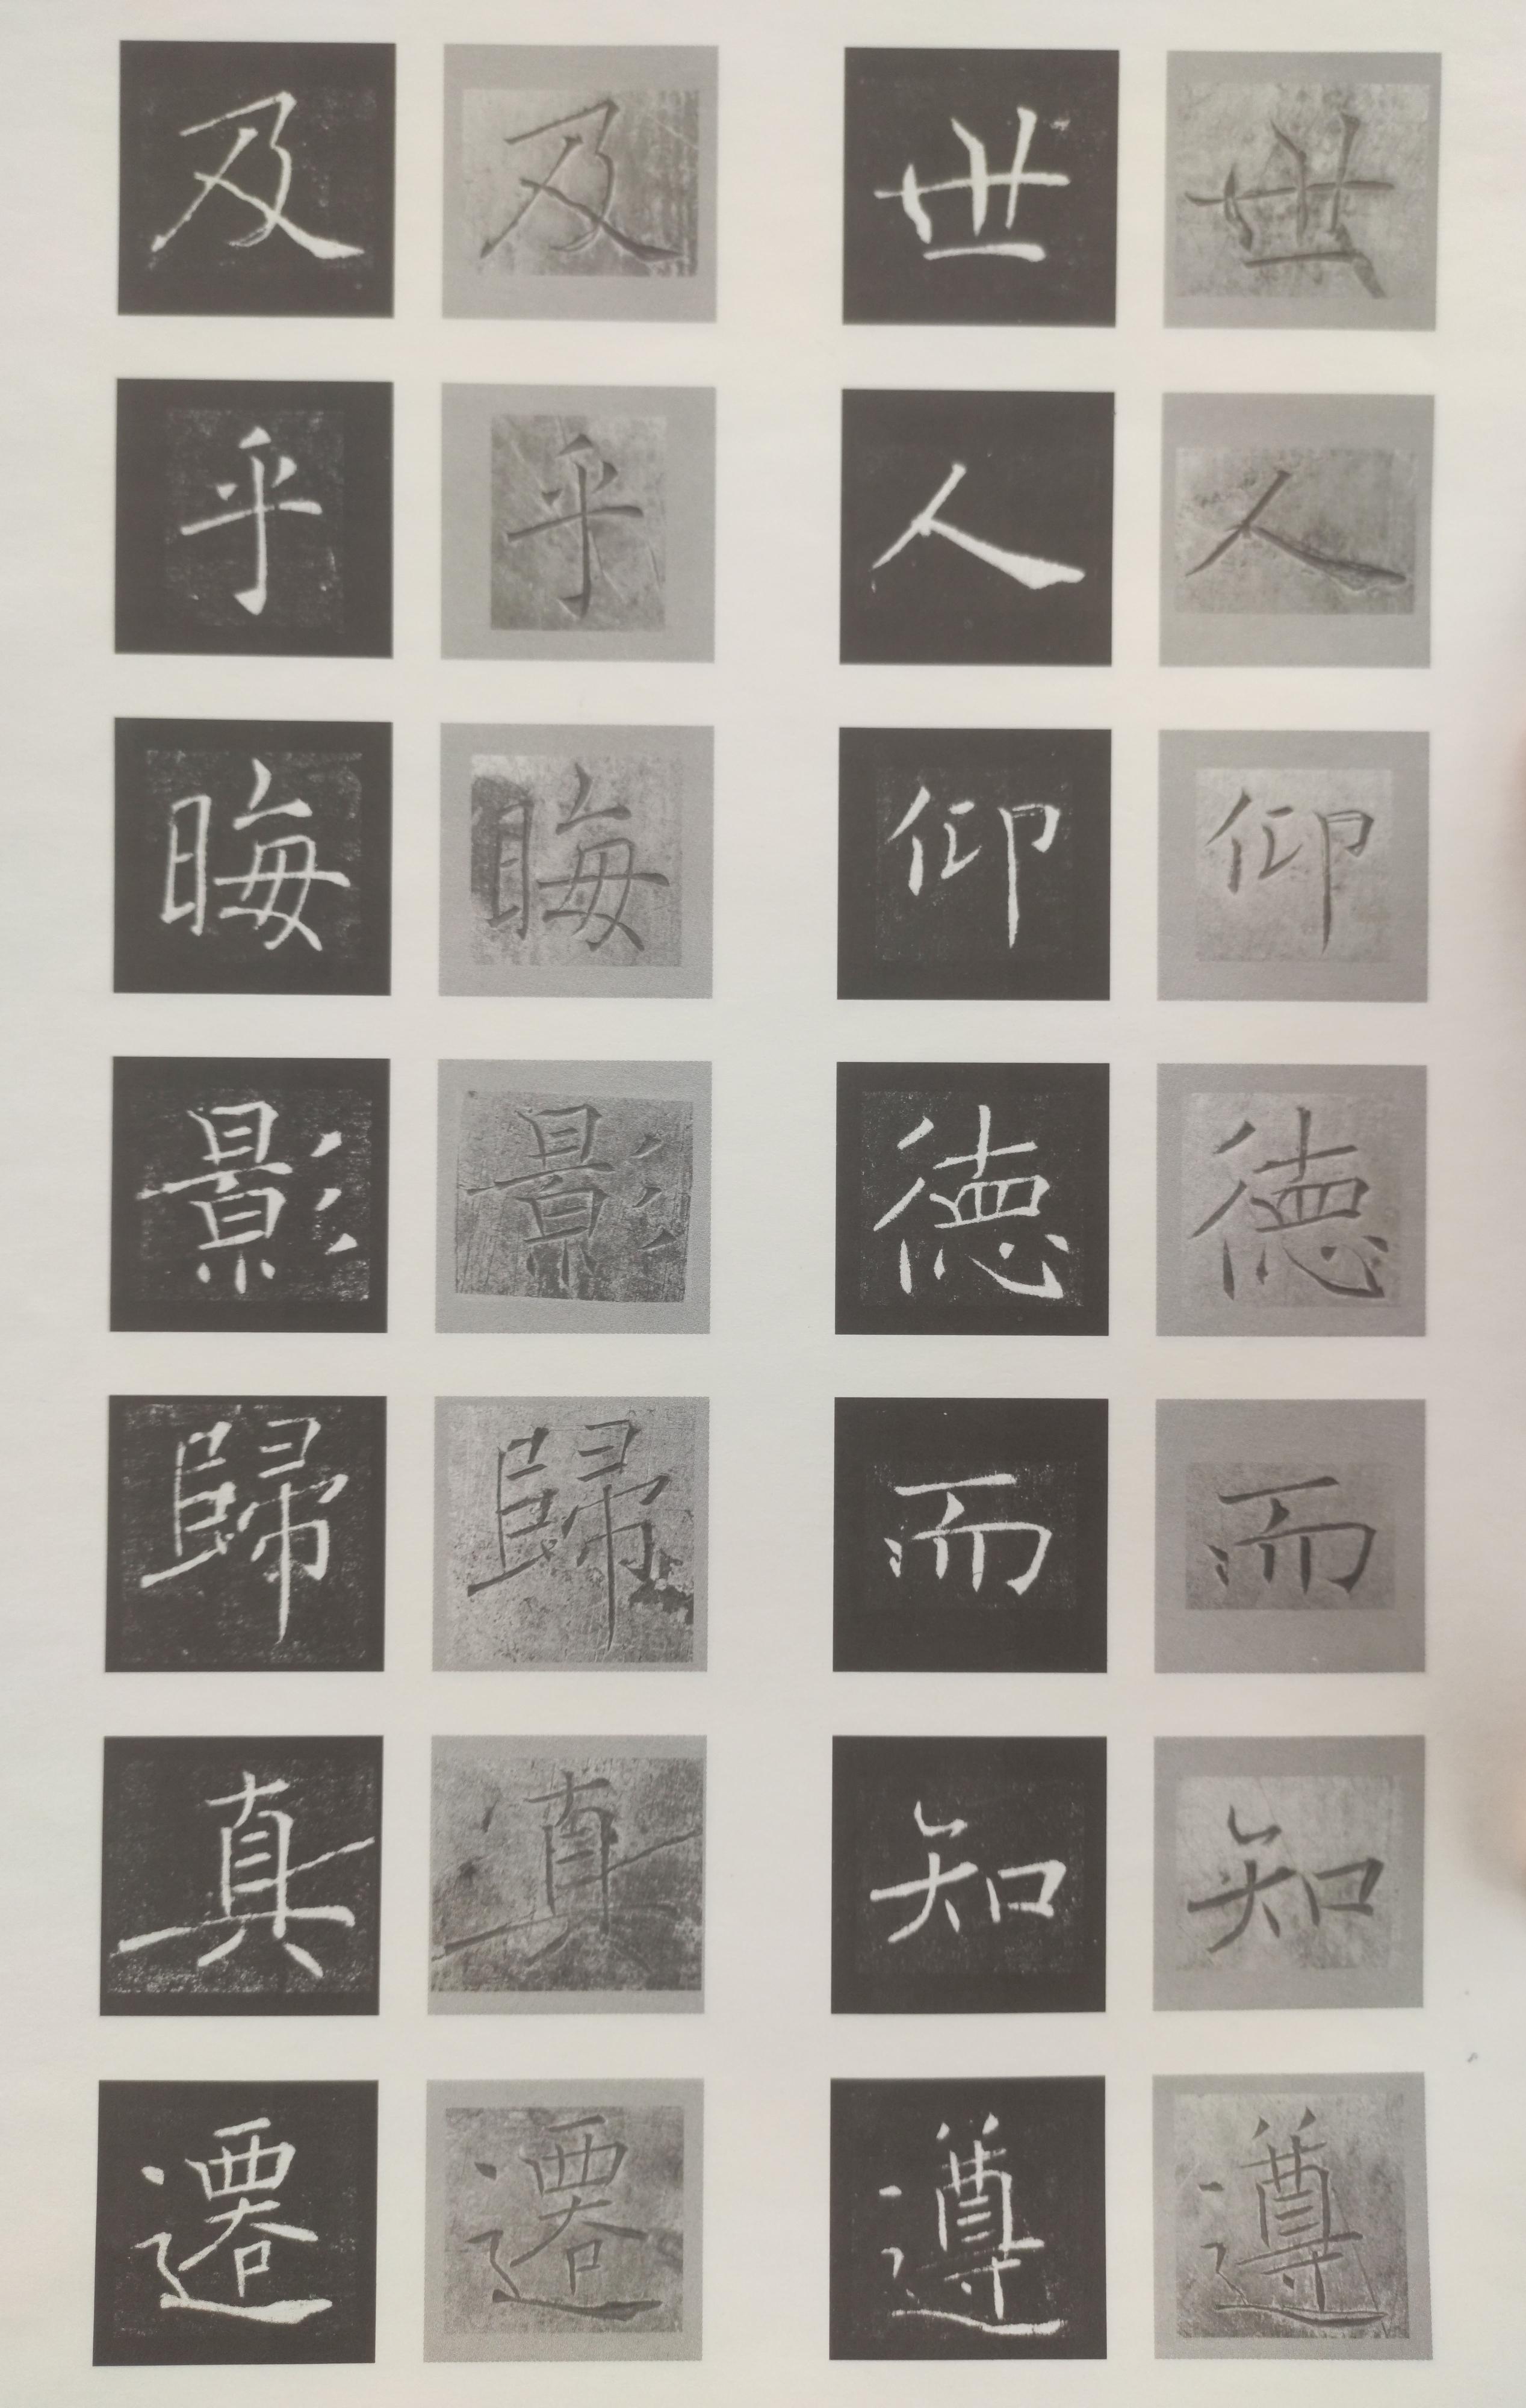 世人仰徳而知遵
世人仰徳而知遵
及乎晦影歸真遷
及乎晦影歸真遷